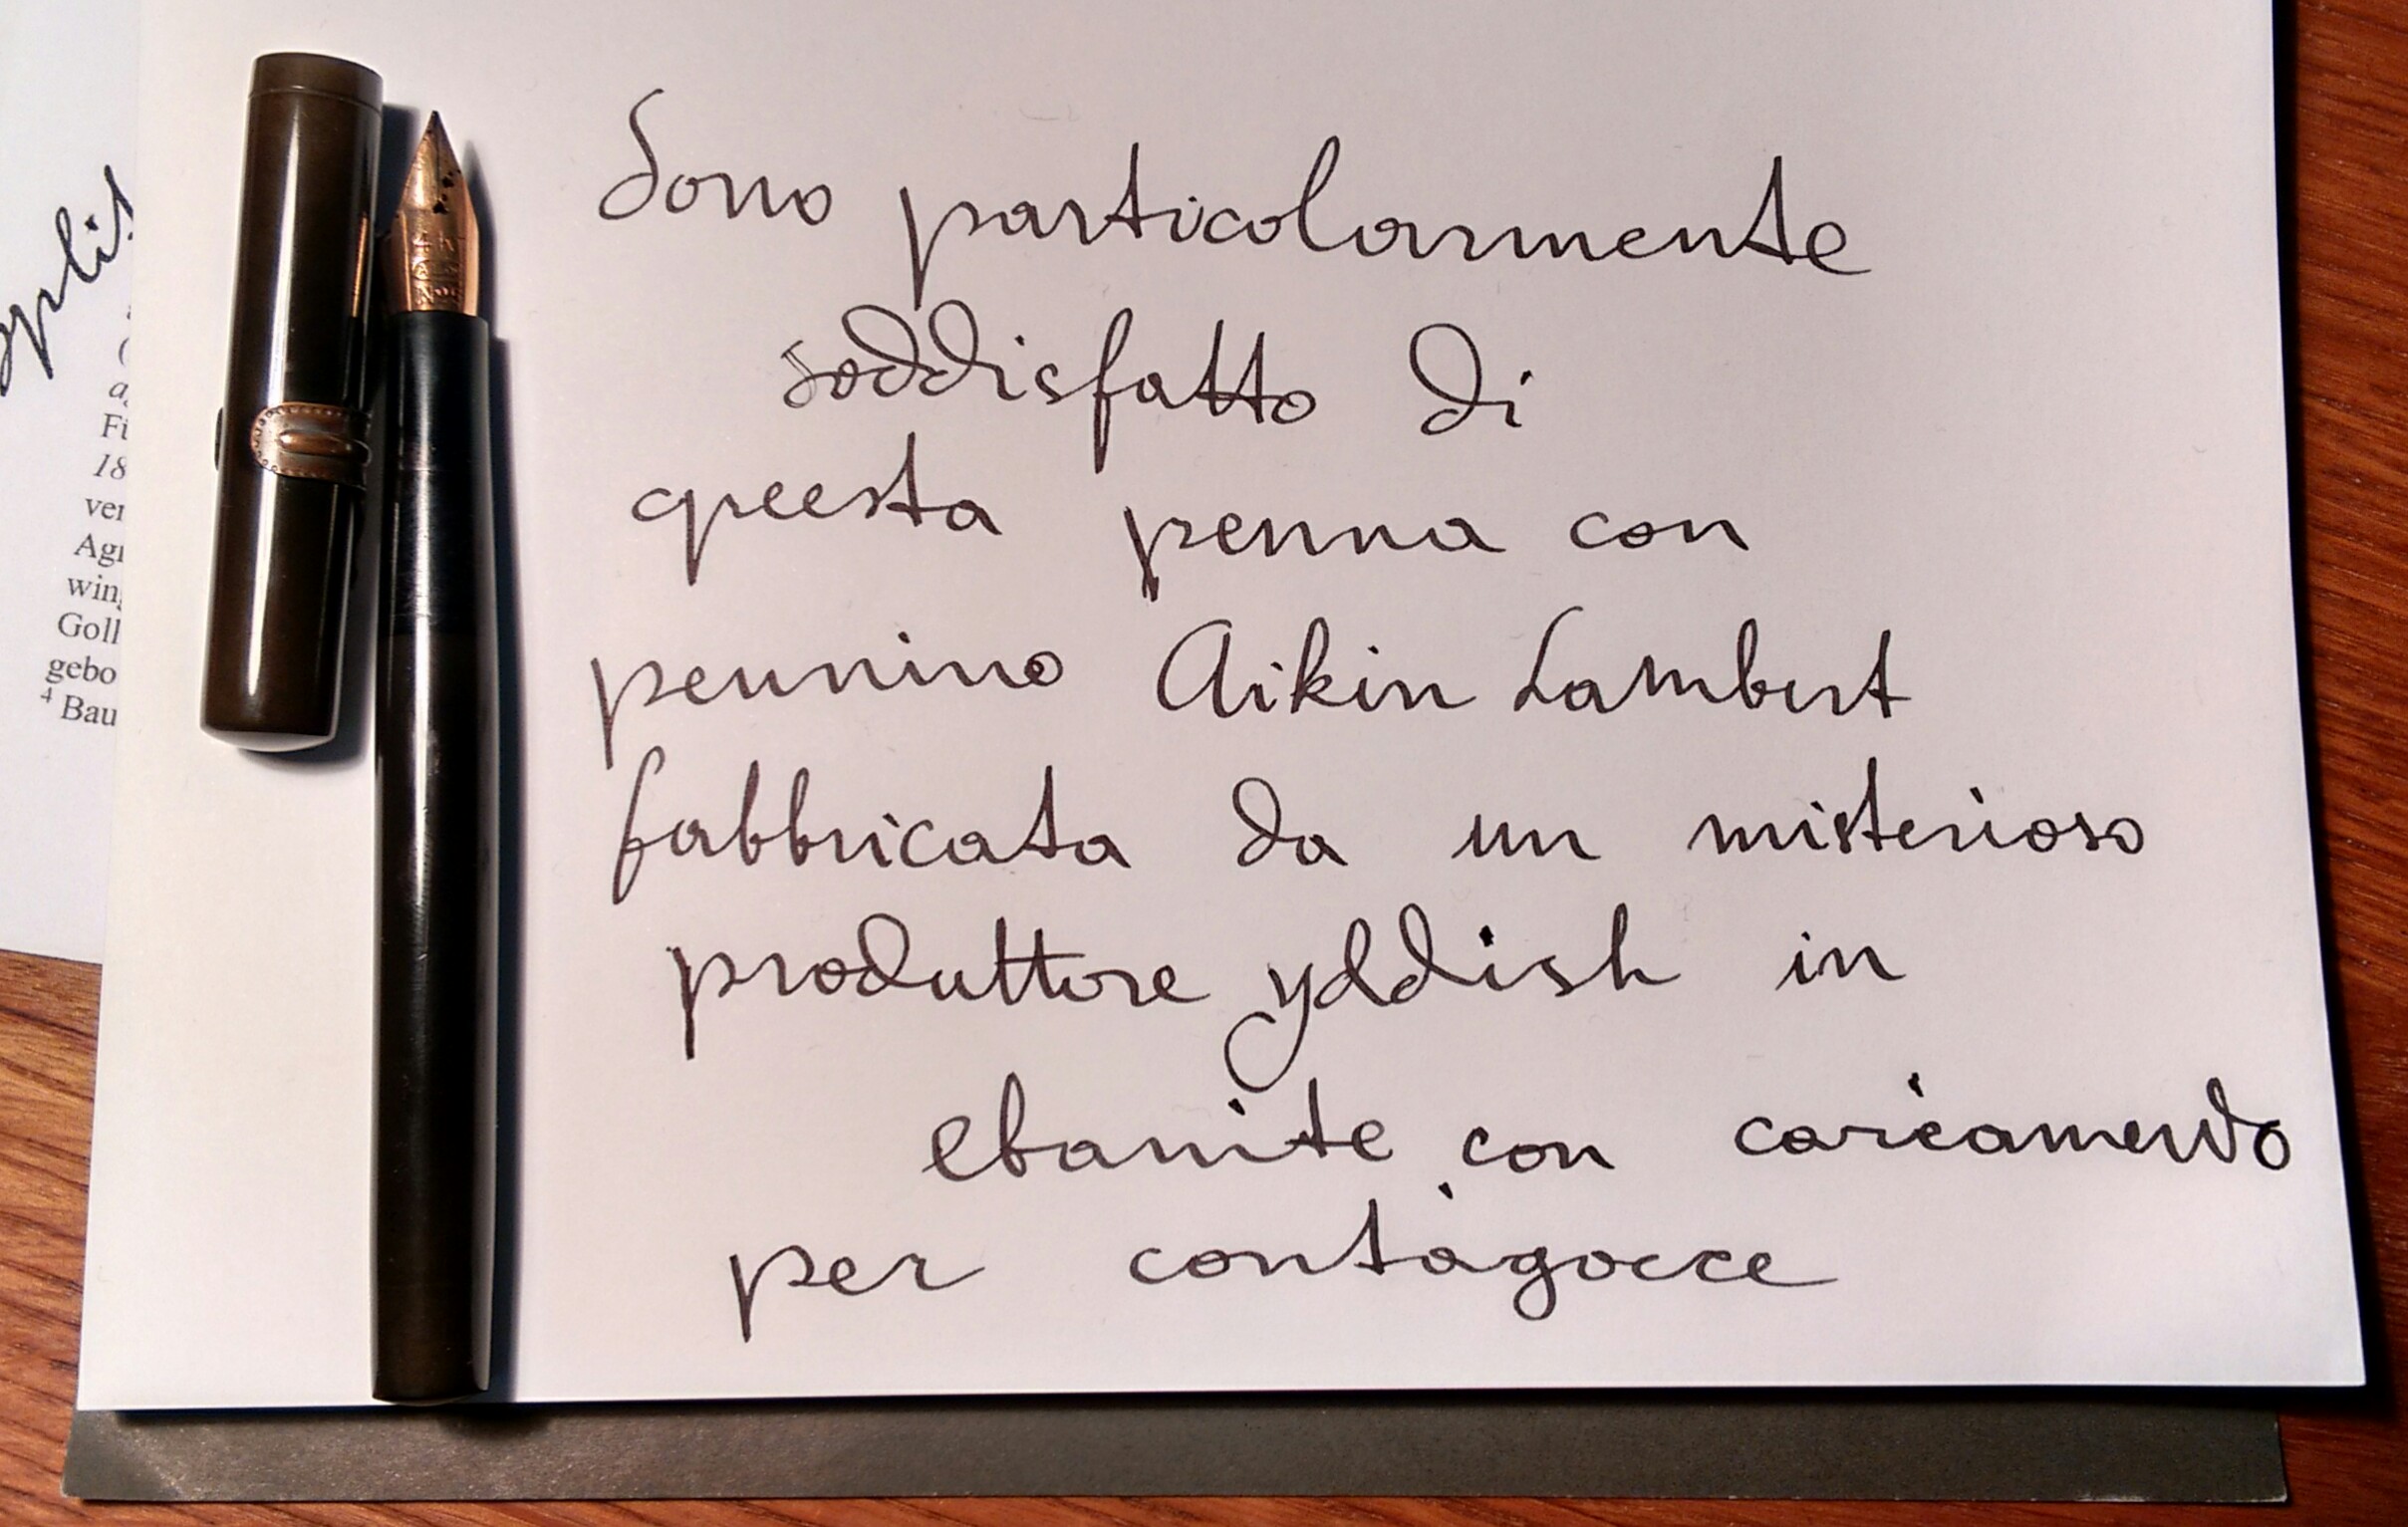 Sono particolarmente
soddisfatto di
questa penna con
pennino Aikin Lambert
fabbricata da un misterioso
produttore yddish in
ebanite con caricamento
per contagocce
Fü
18
ver
Agr
win
Goll
gebo
4 Bau